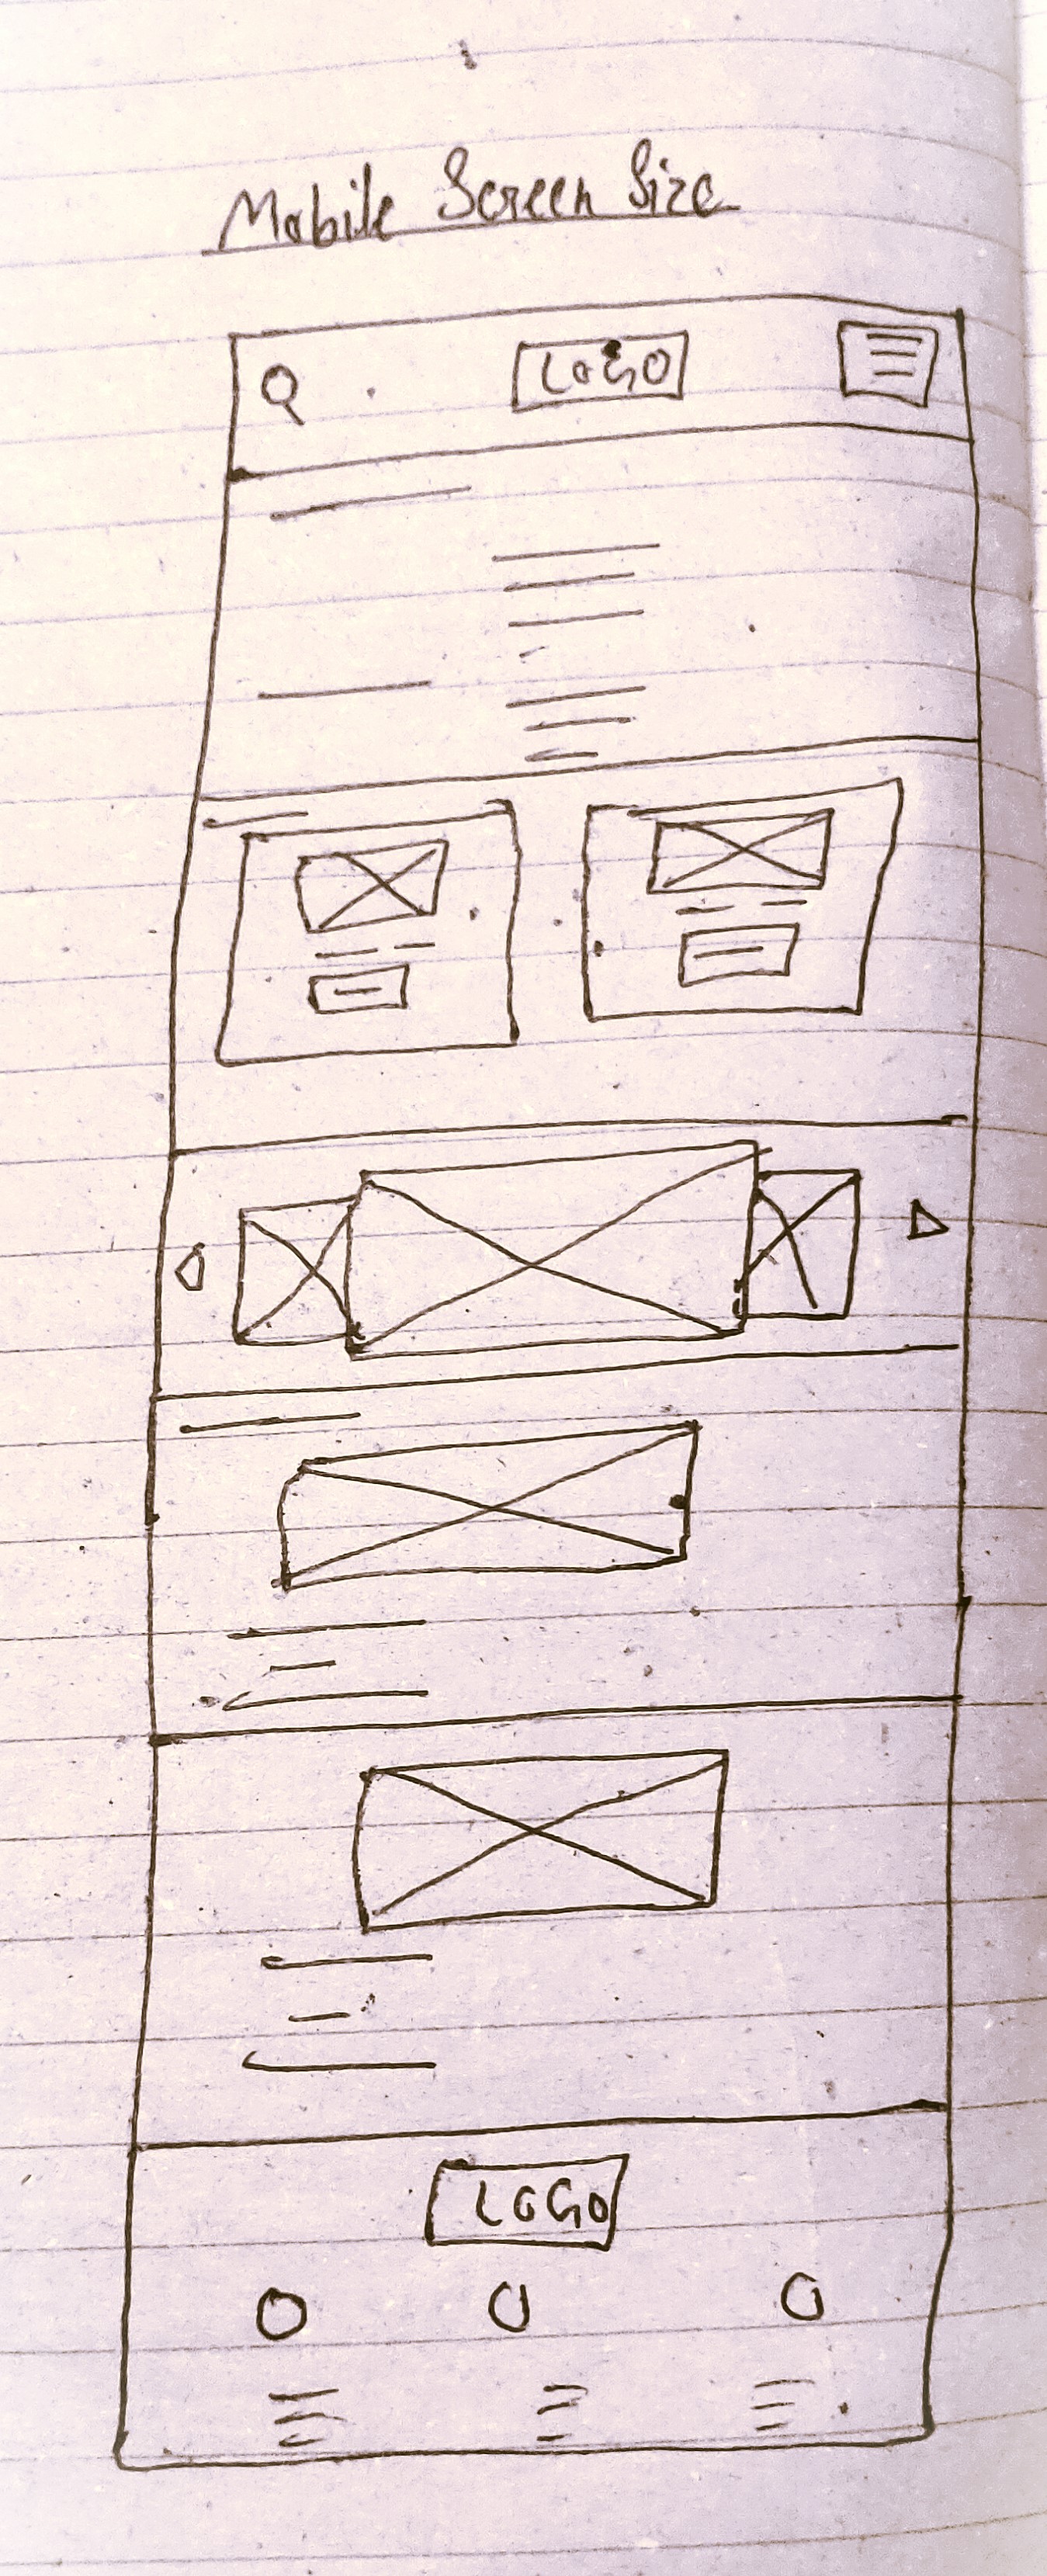 Mobile Screen Size
LOGO
LOGO